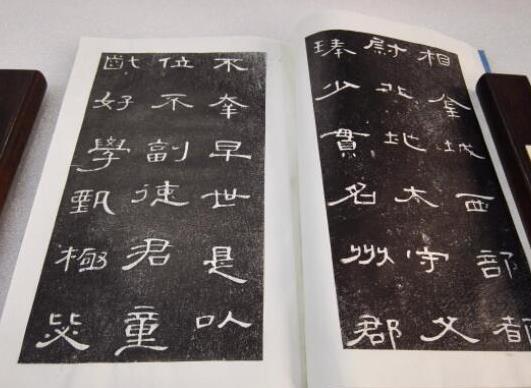 相金城西部都
尉北地太守父
琫少貫名州郡
不幸早世是以
位不副德君童
齔好學甄極毖